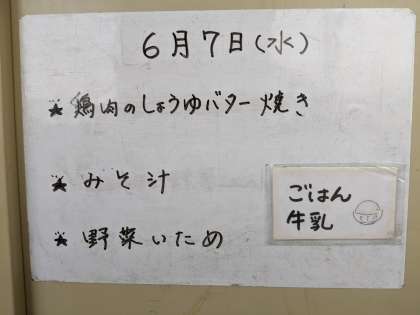 6月7日(水)
★ 鶏肉のしょうゆバター焼き
★ みそ汁
★ 野菜いため
ごはん
牛乳